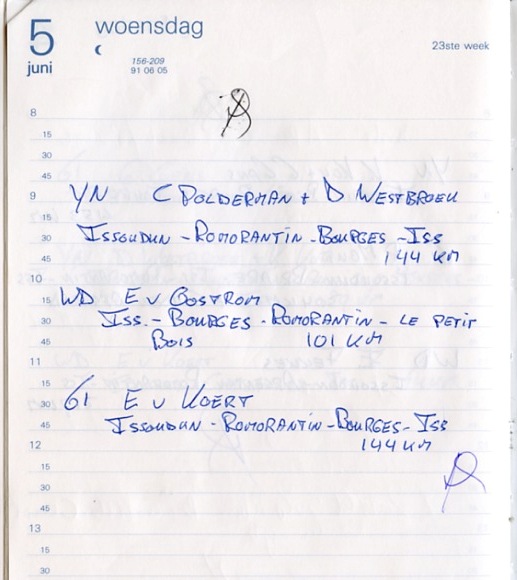 5 woensdag
juni
156-209
91 06 05
23ste week
8
15
30
45
9 YN C POLDERMAN + D WESTBROEK
15
30 ISSOUDUN - ROMORANTIN - BOURGES - ISS
45 144 KM
10
15 WD E v OOSTROM
30 ISS. - BOURGES - ROMORANTIN - LE PETIT
45 BOIS 101 KM
11
15
30 61 E v KOERT
45 ISSOUDUN - ROMORANTIN - BOURGES - ISS
12 144 KM
15
30
45
13
15
30